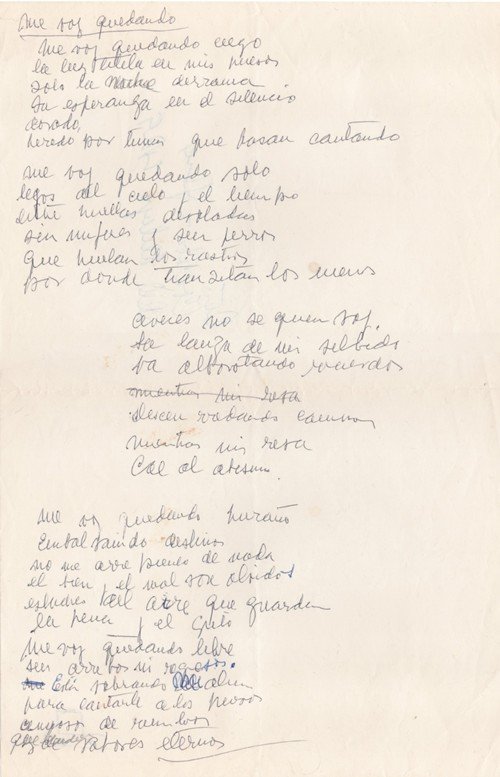 Me voy quedando
Me voy quedando ciego
la luz titila en mis huesos
solo la noche derrama
su esperanza en el silencio
dorado,
heredo por tunas que pasan cantando
me voy quedando solo
lejos del cielo y el tiempo
entre huellas desoladas
sin mujeres y sin perros
que huelan los rastros
por donde transitan los menos
aveces no se quien soy.
La lanza de mi silbido
va alborotando recuerdos
mientras mi resa
descen rodando caminos
mientras mi resa
cae al abismo
me voy quedando huraño
Embalsamado destinos
no me arrepiento de nada
el bien y el mal son olvidos
del aire que guardan
la pena y el grito
Me voy quedando libre
sin arrobos ni
Está sobrando
para cantarle a los perros
de rumbos
de sabores eternos